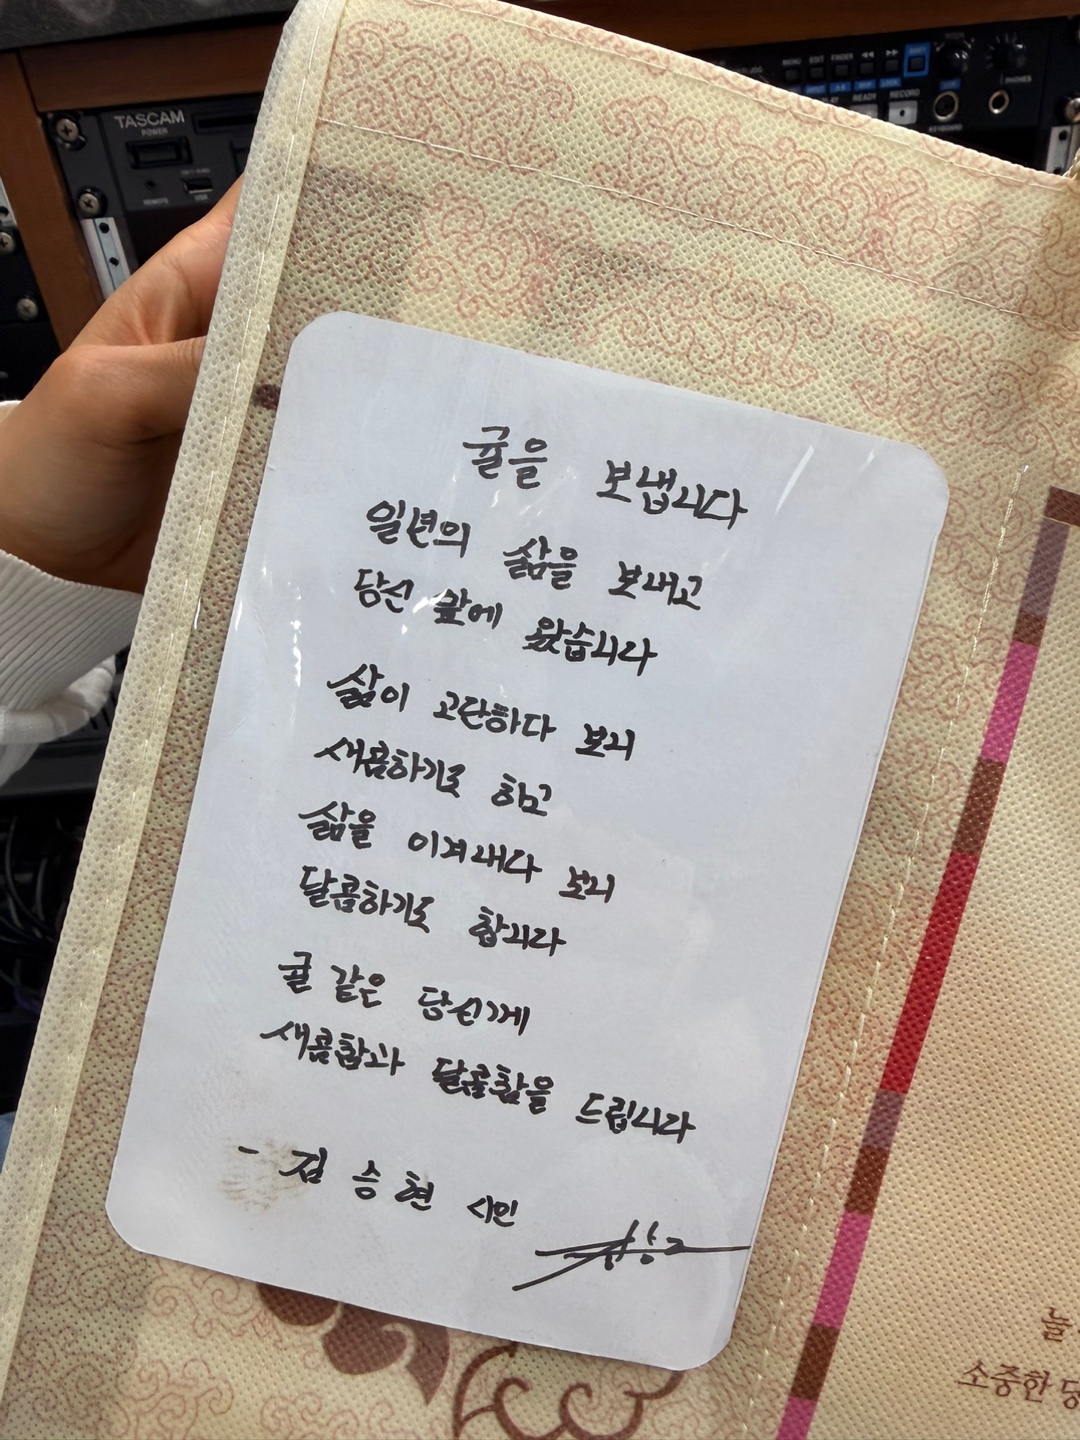 TASCAM
POWER
REMOTE
USB
MENU EDIT FINDER
READY RECORD
KEYBOARD
PHONES
귤을 보냅니다
일년의 삶을 보내고
당신 앞에 왔습니다
삶이 고단하다 보니
새콤하기도 하고
삶을 이겨내다 보니
달콤하기도 합니다
귤 같은 당신께
새콤함과 달콤함을 드립니다
- 김승현 시인
늘
소중한 당